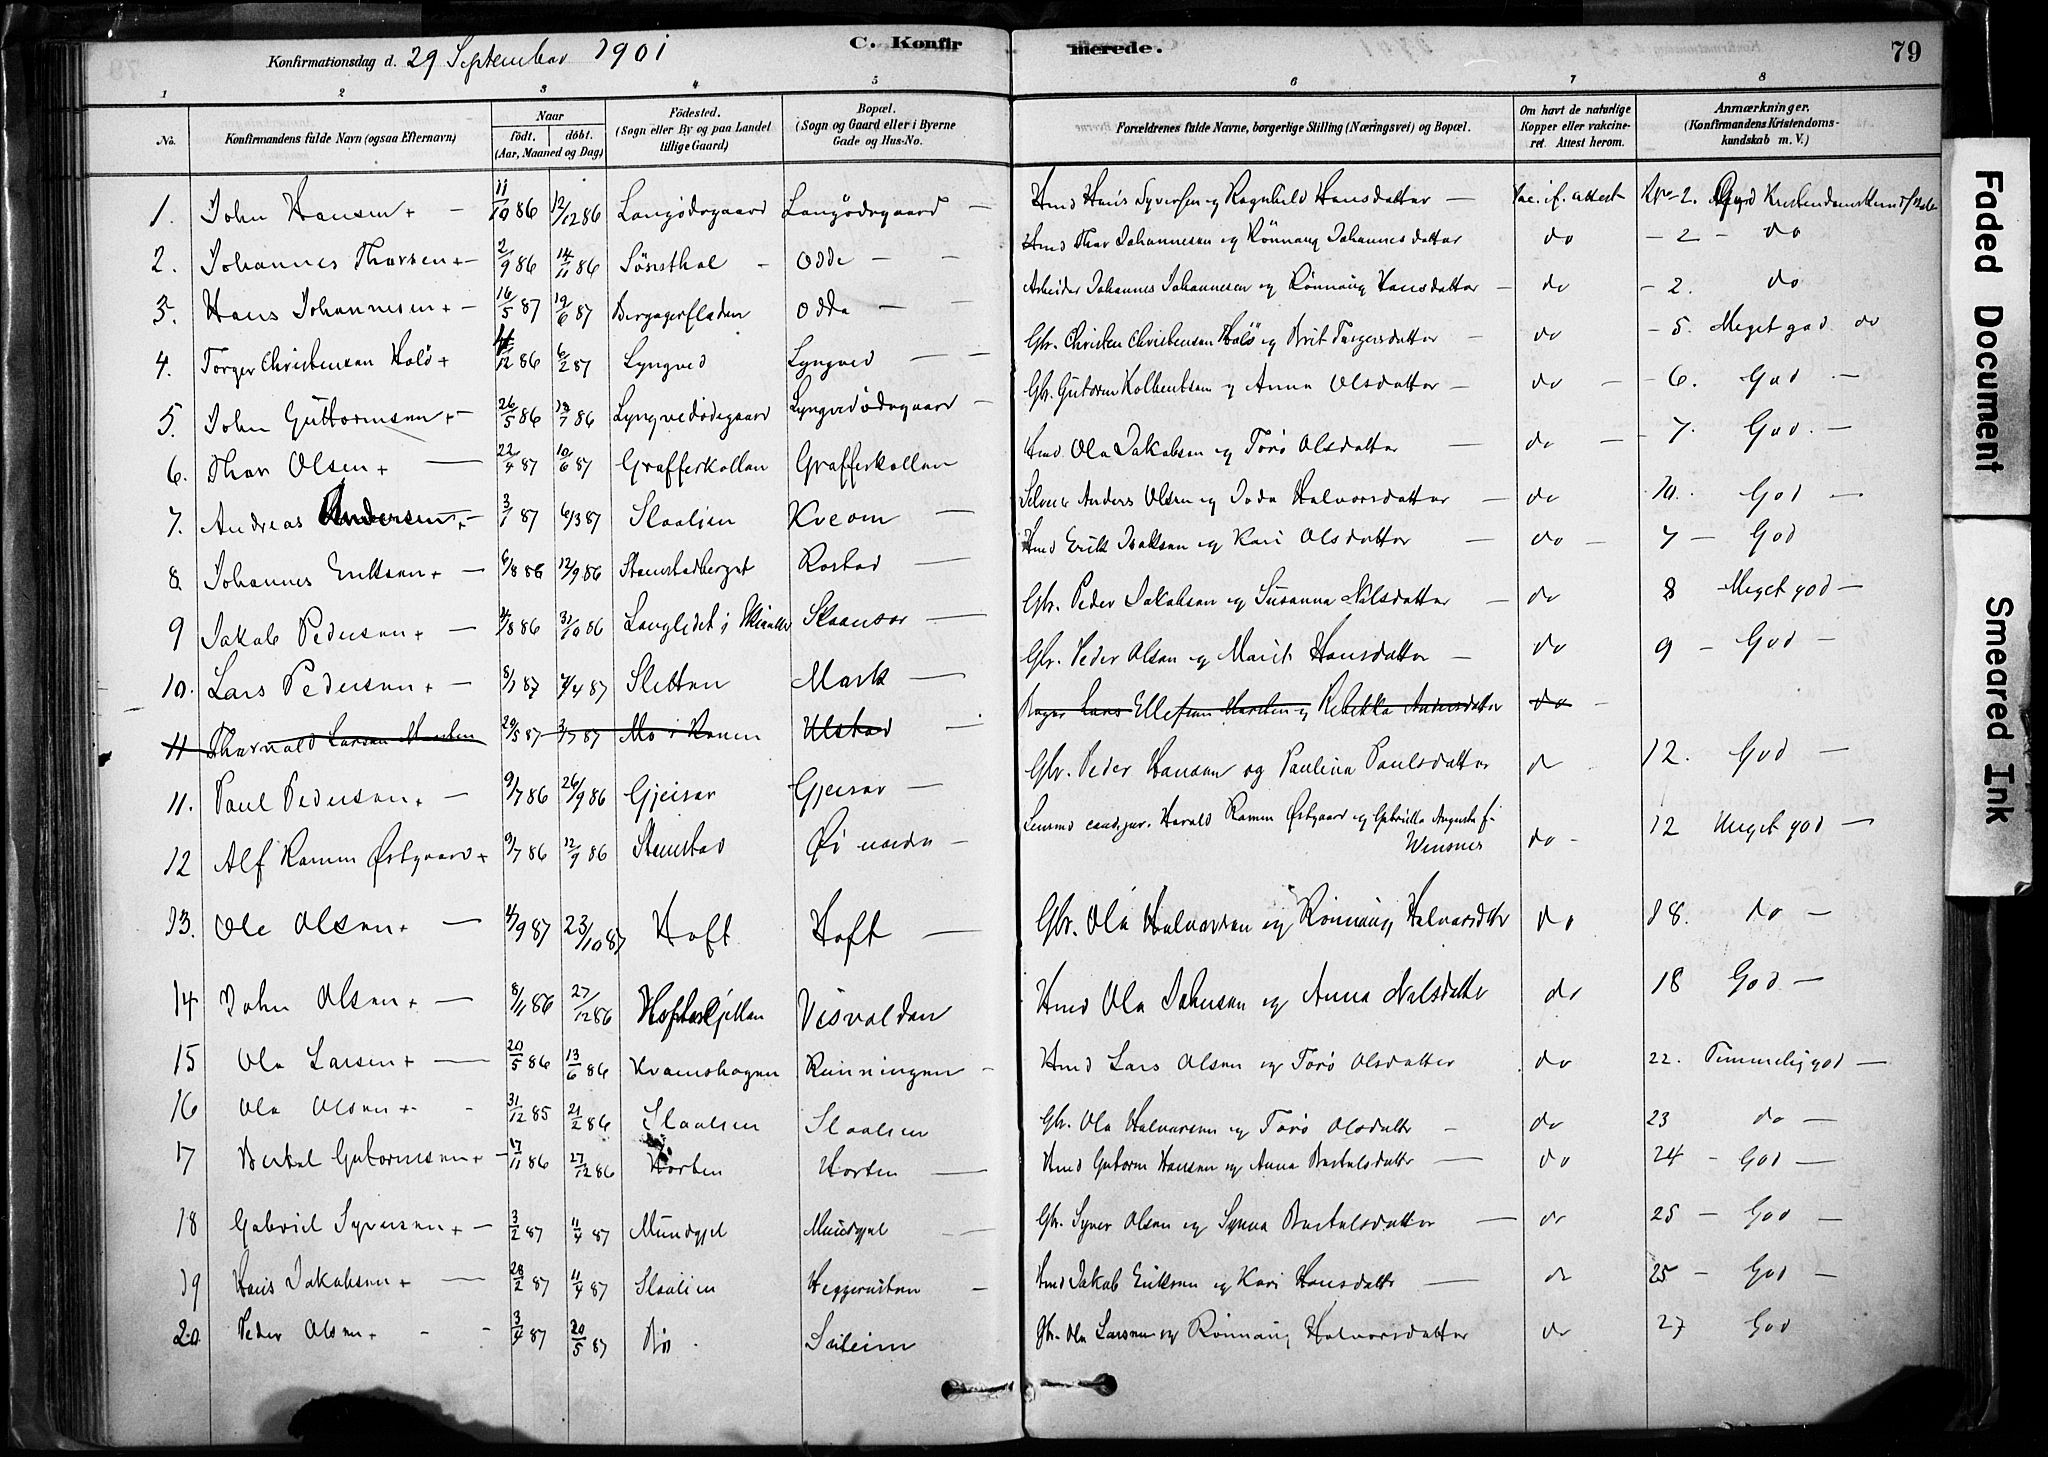 Konfirmationsdag d. 29 September 1901
C. Konfirmerede.
79
1 2 3 4 5 6 7 8
No.
Konfirmandens fulde Navn (ogsaa Efternavn)
Naar
födt. döbt.
(Aar, Maaned og Dag)
Födested.
(Sogn eller By og paa Landet
tillige Gaard)
Bopæl.
(Sogn og Gaard eller i Byerne
Gade og Hus-No.
Forældrenes fulde Navne, borgerlige Stilling (Næringsvei) og Bopæl.
Om havt de naturlige
Kopper eller vakcine-
ret. Attest herom.
Anmærkninger.
(Konfirmandens Kristendoms-
kundskab m. V.)
1. John Hansen + — 11/10 86 12/12 86 Langödegaard Langödegaard — Hmd Hans Syversen og Ragnhild Hansdatter — Vac. if. attest No 2. Kristendomskundskab
2. Johannes Tharsen + — 2/9 86 14/11 86 Sönsthal - Odde — Hmd Thor Johannesen og Rönnaug Johannesdatter do — 2 — do
3. Hans Johannesen + — 16/5 87 19/6 87 Bergagerfladen Odda — Arbeider Johannes Johannesen og Rönnaug Hansdatter — do — 2. do
4. Torger Christensen Holö + /12 86 6/2 87 Lyngved Lyngved — Gbr. Christen Christensen Holö og Brit Torgersdatter — do — 5. Meget god do
5. John Guttormsen + — 26/5 86 18/7 86 Lyngvedödegaard Lyngvedödegaard — Gbr. Guttorm Kolbentsen og Anna Olsdatter — do — 6. God —
6. Thor Olsen + — 22/4 87 10/6 87 Grafferkollen Grafferkollen Hmd Ola Jakobsen og Torö Olsdatter — do — 7. God —
7. Andreas Andersen + — 3/1 87 6/3 87 Slaalien Kveom — Anders Olsen og Halvorsdatter — do 10. God —
8 Johannes Eriksen + — 6/8 86 12/9 86 Stamstadberget Rostad — Hmd Erik Isaksen og Kari Olsdatter — do — 7 — God
9 Jakob Pedersen + — /8 86 31/10 86 Langledet i Skiaaker Skansar — Gbr. Peder Jakobsen og Susanna Nilsdatter — do 8 Meget god —
10. Lars Pedersen + — 8/1 87 4/4 87 Sletten Mork — Gbr. Peder Olsen og Marit Hansdatter — do 9 — God —
11 Thorvald Larsen 29/5 87 3/7 87 Mo i Ranen Ulstad — Bager Lars Ellefsen og Rebekka Andersdatter do —
11. Paul Pedersen + — 9/7 86 26/9 86 Gjeisar Gjeisar — Gbr. Peder Hansen og Paulina Paulsdatter do 12. God —
12 Alf Ramm Östgaard + 9/7 86 12/9 86 Stamstad Öi nordre — Lensmd cand. jur. Harald Ramm Östgaard og Gabriella Augusta f.
Wensnes do — 12 Meget god —
13. Ole Olsen + — 4/9 87 23/10 87 Hoft Hoft — Gbr. Ola Halvorsen og Rönnaug Halvorsdtr do 18. do —
14 John Olsen + — 8/11 86 27/12 86 Visvoldan Hmd Ola Johnsen og Anna Nilsdatter do 18 God —
15 Ola Larsen + — 20/5 86 13/6 86 Kvamshagen Runningen — Hmd Lars Olsen og Torö Olsdatter do 22. Temmelig god —
16 Ola Olsen + - 31/12 85 21/2 86 Slaalien Slaalien Gbr. Ola Halvorsen og Torö Olsdatter — do 23 do —
17 Bertel Gutormsen + — 17/11 86 27/12 86 Horten Horten — Hmd Gutorm Hansen og Anna Bertelsdatter — do 24 — God —
18 Gabriel Syversen + — 3/2 87 11/4 87 Mundgjel Mundgjel — Gbr. Syver Olsen og Synva Bertelsdatter — do 25 — God —
19 Hans Jakobsen + — 28/2 87 11/4 87 Slaalien Heggerusten — Hmd Jakob Eriksen og Kari Hansdatter — do 25 — God —
20 Peder Olsen + - - 3/4 87 20/5 87 Bö - Sæteim Gbr. Ola Larsen og Rönnaug Halvorsdatter do 27 God
Faded Document
Smeared Ink